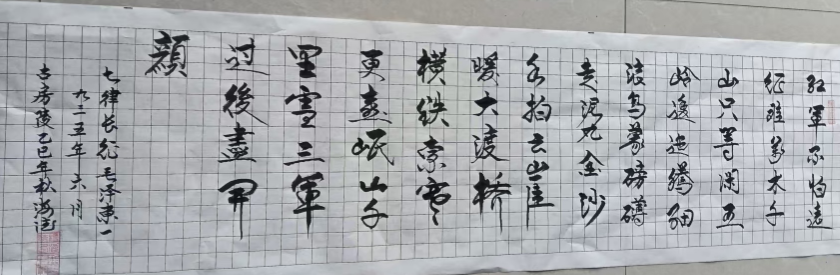 红軍不怕遠
征難萬水千
山只等闲五
岭逶迤腾细
浪烏蒙磅礴
走泥丸金沙
水拍云崖
暖大渡桥
横铁索寒
更喜岷山千
里雪三軍
过後盡開
顔
七律长征毛泽东一
九三五年六月
古房陵乙巳年秋海